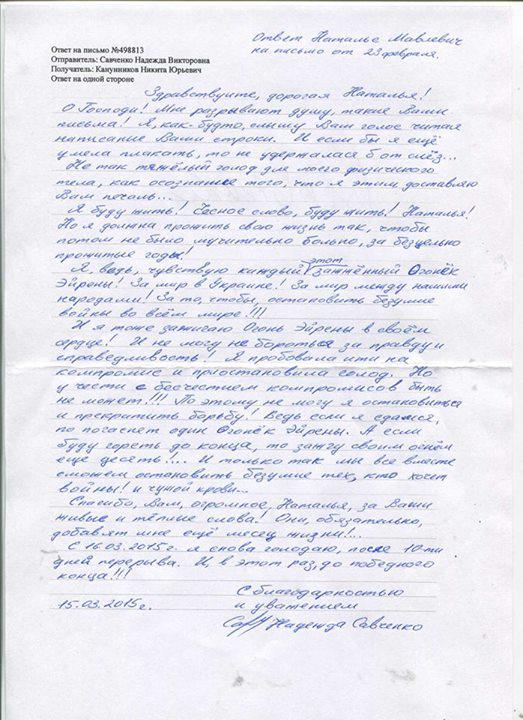 Ответ Наталье Мавлевич
на письмо от 23 февраля.
Ответ на письмо №498813
Отправитель: Савченко Надежда Викторовна
Получатель: Канунников Никита Юрьевич
Ответ на одной стороне
Здравствуйте, дорогая Наталья!
О Господи! Мне разрывают душу, такие Ваши
письма! Я, как-будто, слышу Ваш голос читая
написаные Вами строки. И если бы я ещё
умела плакать, то не удержалася б от слёз...
Не так тяжёлый голод для моего физического
тела, как осознание того, что я этим доставляю
Вам печаль...
Я буду жить! Чесное слово, буду жить! Наталья!
Но я должна прожить свою жизнь так, чтобы
потом не было мучительно больно, за безцельно
прожитые годы!
Я, ведь, чувствую каждый этот зажжённый Огонёк
Эйрены! За мир в Украине! За мир между нашими
народами! За то, чтобы, остановить безумие
войны во всём мире!!!
И я тоже зажигаю Огонь Эйрены в своём
сердце! И не могу не бороться за правду и
справедливость! Я пробовала идти на
компромис и приостановила голод. Но
у чести с бесчестием компромисов быть
не может!!! По этому не могу я остановиться
и прекратить борьбу! Ведь если я сдамся,
по погаснет один Огонёк Эйрены. А если
буду гореть до конца, то зажгу своим огнём
ещё десять!... И только так мы все вместе
сможем остановить безумие тех, кто хочет
войны! и чужой крови...
Спасибо, Вам, огромное, Наталья, за Ваши
живые и тёплые слова! Они, обязательно,
добавят мне ещё месяц жизни!...
С 16.03.2015г. я снова голодаю, после 10-ти
дней перерыва. И, в этот раз, до победного
конца!!!
С благодарностью
15.03.2015г. и уважением
Надежда Савченко